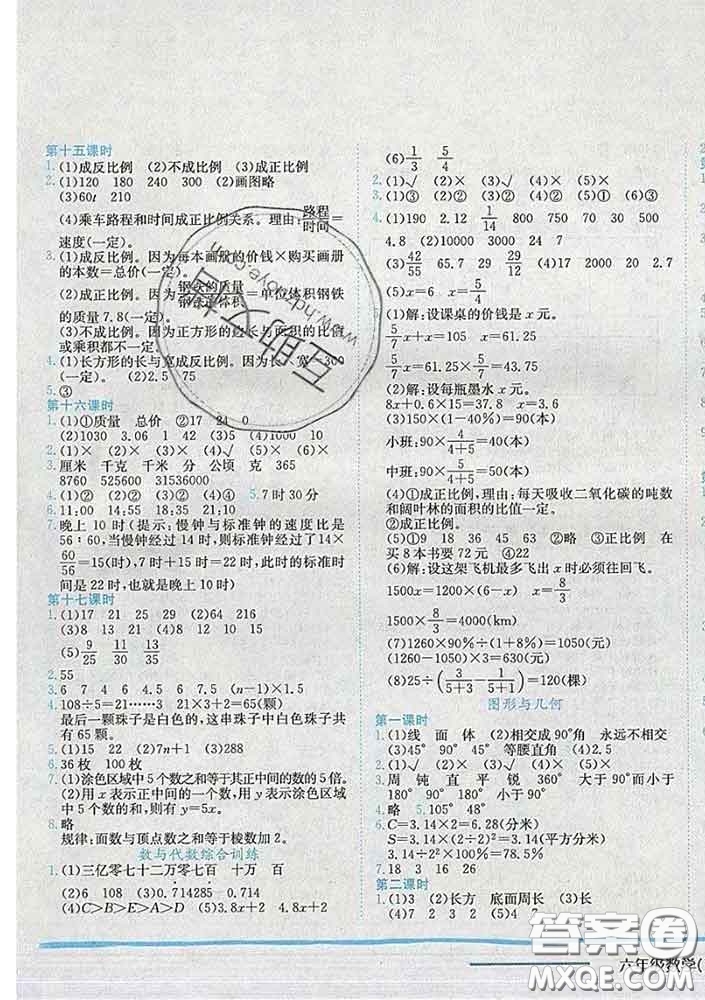 第十五课时
1.(1)成反比例 (2)不成比例 (3)成正比例
2.(1)120 180 240 300 (2)画图略
(3)60t 210
(4)乘车路程和时间成正比例关系。理由:路程/时间=
速度(一定)。
3.(1)成反比例。因为每本画册的价钱×购买画册
的本数=总价(一定)。
(2)成正比例。因为钢铁的质量/钢铁的体积=单位体积钢铁
的质量7.8(一定)。
(3)不成比例。因为正方形的边长与面积的比值
或乘积都不一定。
4.(1)长方形的长与宽成反比例。因为长×宽=300
(一定)。 (2)2.5 75
5.③
第十六课时
1.(1)①质量 总价 ②17 24 0
(2)1030 3.06 1 42 5 (3)1000 10
2.(1)× (2)× (3)√ (4)×
3.厘米 千克 千米 分 公顷 克 365
8760 525600 31536000
4.(1)② (2)② (3)① (4)④ 5.7时30分
6.11:00 14:05 17:55 21:05
7.晚上10时(提示:慢钟与标准钟的速度比是
56∶60,当慢钟经过14时,则标准钟经过了14×
60/56=15(时),7时+15时=22时,此时的标准时
间是22时,也就是晚上10时)
第十七课时
1.(1)17 21 25 29 (2)64 216
(3)8 13 21 (4)8 15 13
(5)9/25 11/30 13/35
2.55
3.6 7 4 4.5 6 7.5 (n-1)×1.5
4.108÷5=21……3 21×3+2=65(颗)
最后一颗珠子是白色的,这串珠子中白色珠子共
有65颗。
5.(1)15 (2)22 (2)7n+1 (3)288
6.36枚 100枚
7.(1)涂色区域中5个数之和等于其中间的数的5倍。
(2)用x表示正中间的一个数,用y表示涂色区域
中5个数之和,有y=5x。
8.略
规律:面数与顶点数之和等于棱数加2。
数与代数综合训练
1.(1)三亿零七十二万零七百 十万 百
(2)6 108 (3)0.714285 0.714
(4)C>B>E>A>D (5)3.8x+2 4 3.8x+2
(6)1/3 5/4
2.(1)√ (2)× (3)× (4)√ (5)× (6)×
3.(1)③ (2)② (3)② (4)⑤ (5)① (6)③
4.(1)190 2.12 1/14 800 750 40 75
4.8 (2)10000 3000 24 7
(3)42/55 65.7 29/11 (4)17 20 2.7
(5)x=6 x=3/8
5.(1)解:设课桌的价钱是x元。
5/7x+x=105 x=61.25
5/7x=5/7×61.25=43.75
(2)解:设每瓶墨水x元。
8x+0.6×15=37.8 x=3.6
(3)150×(1-40%)=90(本)
小班:90×4/(4+5)=40(本)
中班:90×5/(4+5)=50(本)
(4)①成正比例,理由:每天吸收二氧化碳的吨数
和阔叶林的面积的比值一定。
②成正比例。
(5)①9 18 36 45 63 ②略 ③正比例 在
买8本书要72元 ④22
(6)解:设这架飞机最多飞出x时必须往回飞。
1500x=1200×(6-x) x=8/3
1500×8/3=4000(km)
(7)1260×90%÷(1+8%)=1050(元)
(1260-1050)×3=630(元)
(8)25÷(3/(5+3)-1/(5+1))=120(棵)
图形与几何
第一课时
1.(1)线 面 体 (2)相交成90°角 永远不相交
(3)45° 90° 45° 等腰直角 (4)90°
2.(1)× (2)× (3)√ (4)√
3.周 钝 直 平 锐 360° 90°
4.略 5.105° 48°
6.C=3.14×2=6.28(分米)
S=3.14×(2÷2)²=3.14(平方分米)
3.14÷(2×2)×100%=78.5%
7.18 3 16 26
第二课时
1.(1)3 (2)长方 底面周长 (3)长
(4)7 2 9 (5)4 7
互助文档
www.hdzuoye.com
答案圈
MXQE.COM
六年级数学(